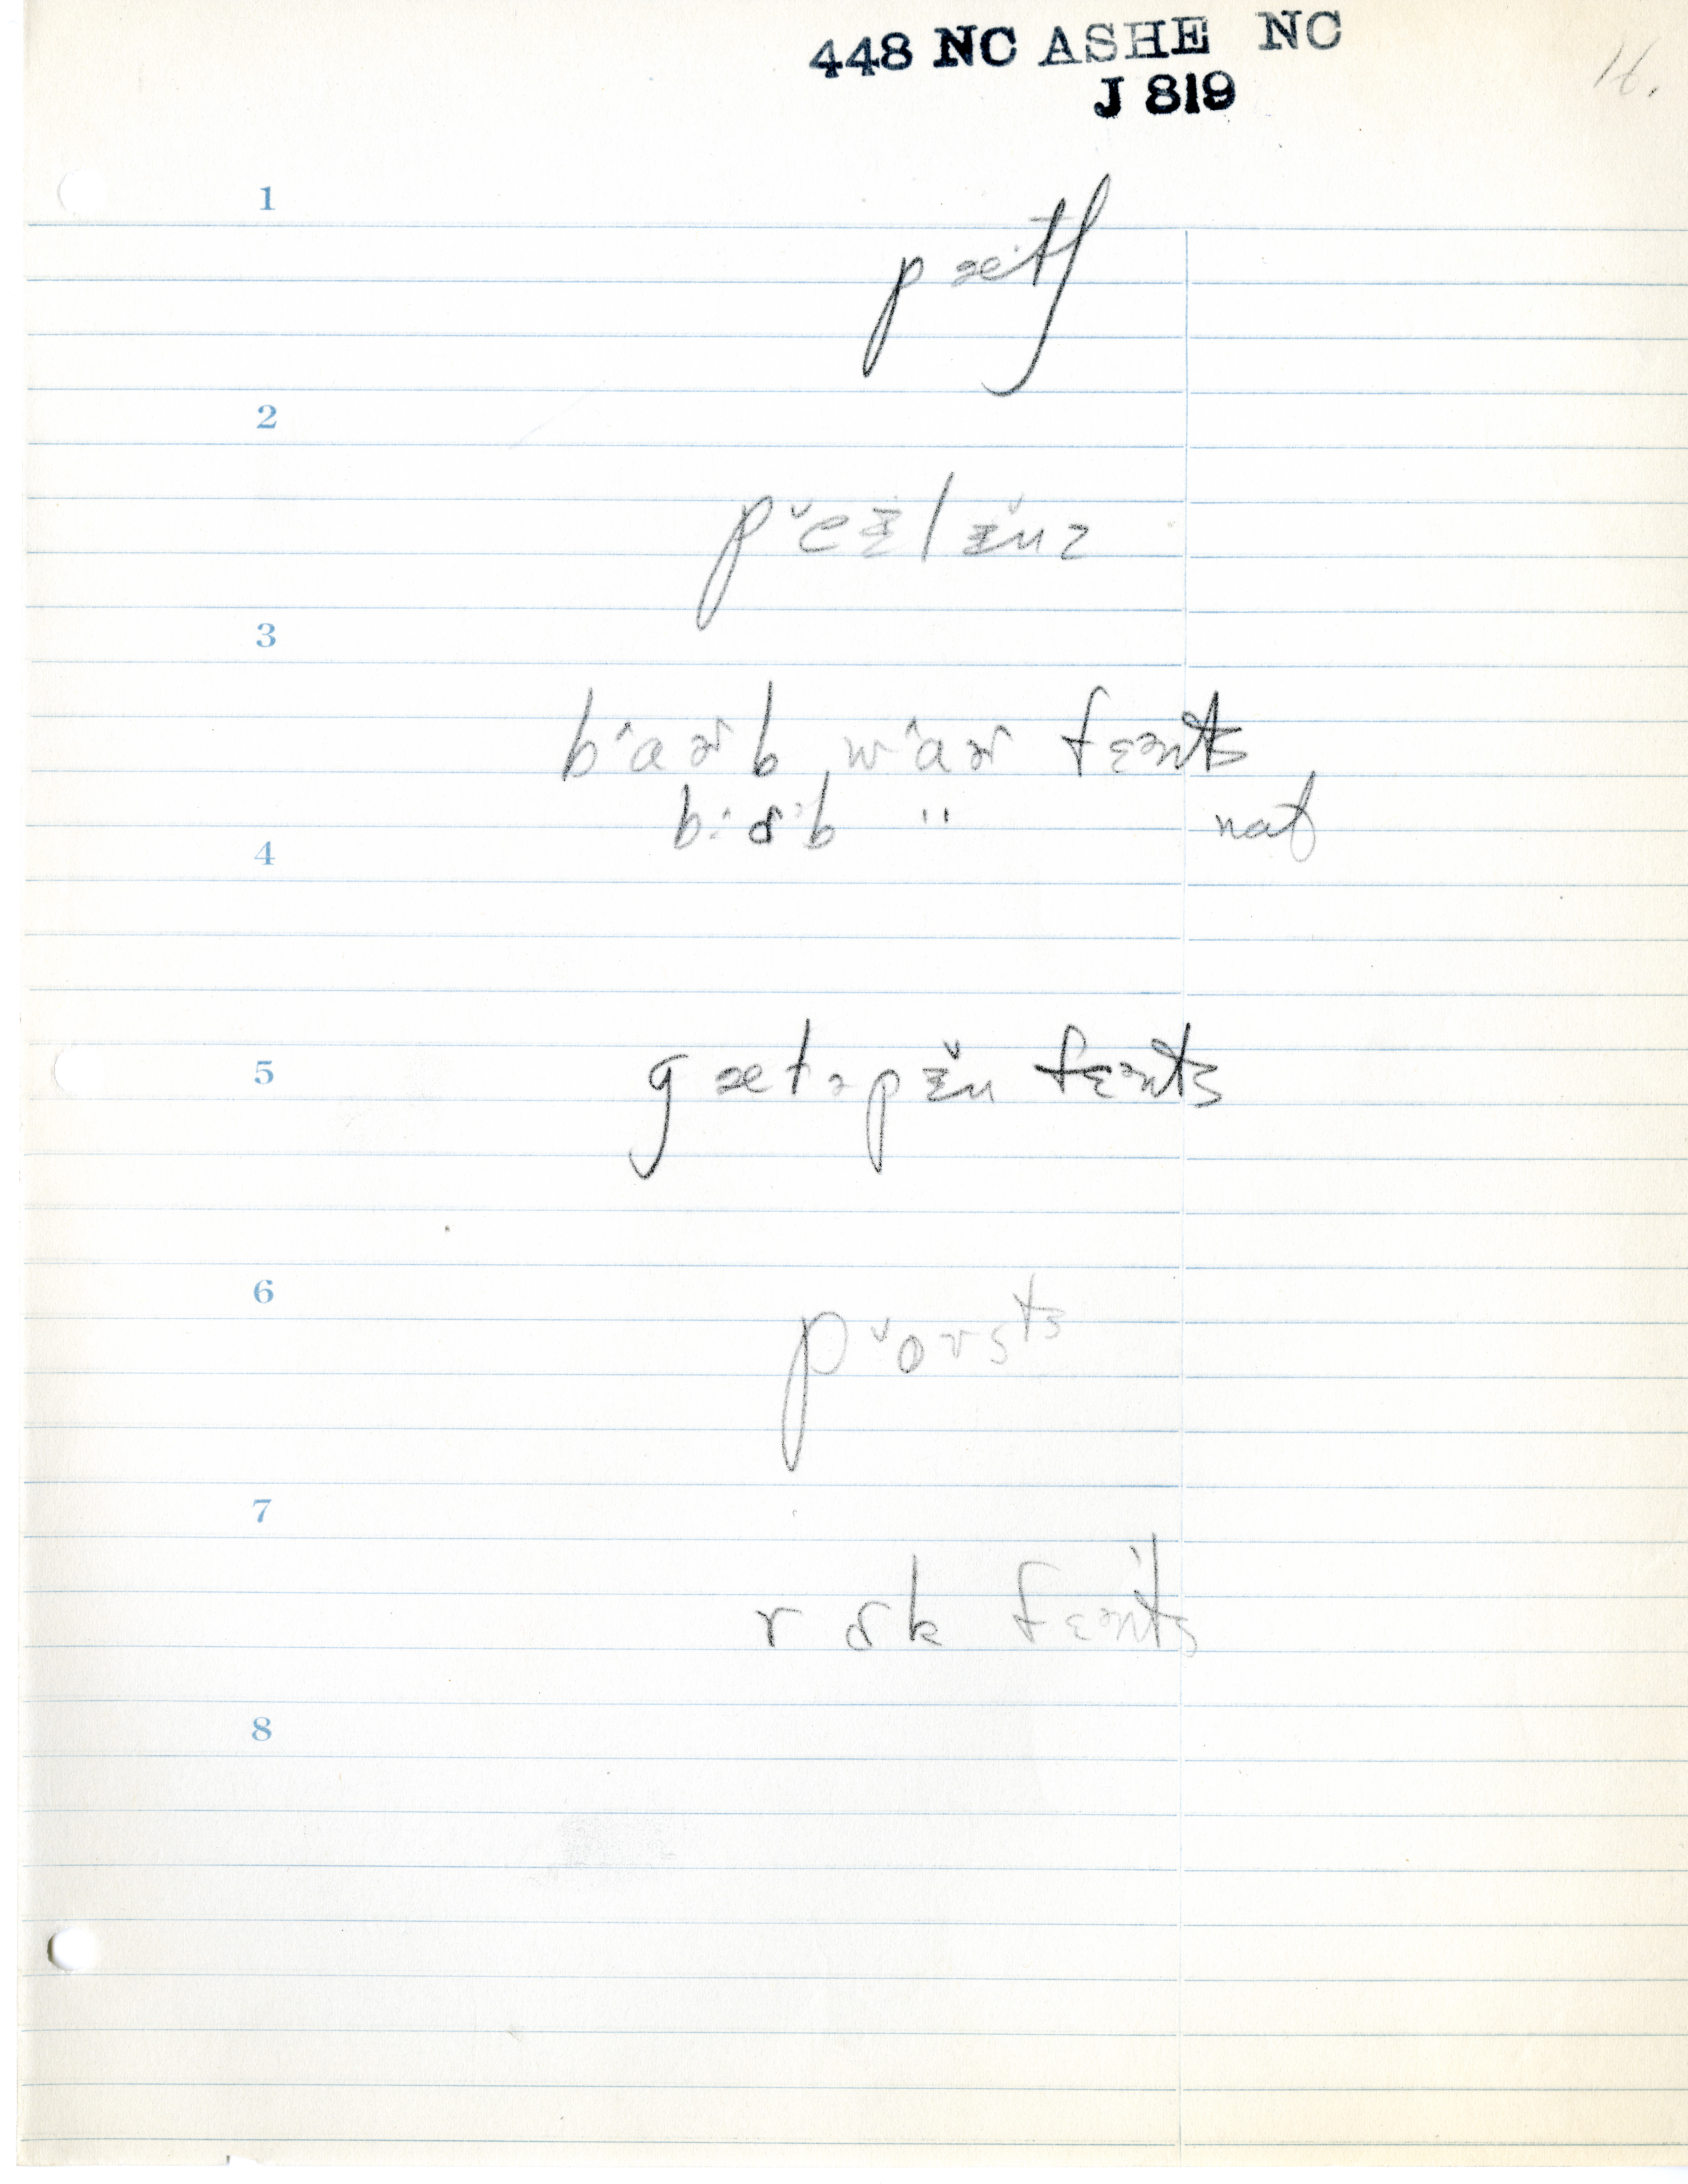 448 NC ASHE NC
J 819
16.
1
pætʃ
2
pˇeɨlɨ̌nz
3
bˆaɚb wˆaɚ fɛənts
b ɑ b " naf
4
5
gætəpɨ̌n fɛənts
6
pˇoʊsts
7
r ɑk fɛənts
8